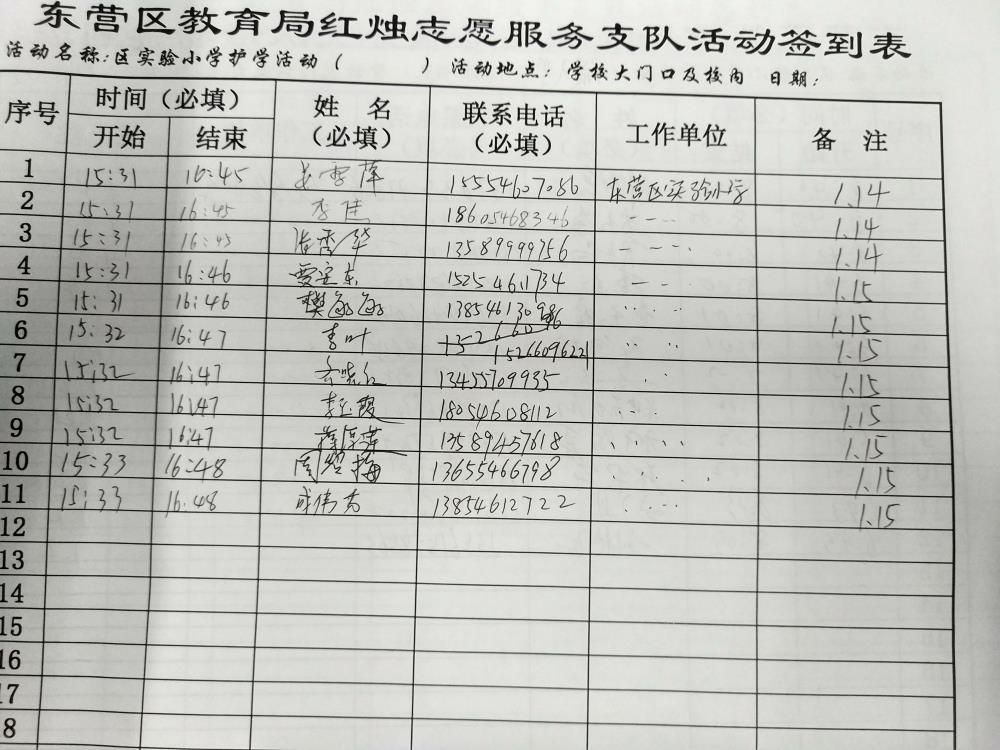 东营区教育局红烛志愿服务支队活动签到表
活动名称:区实验小学护学活动（　　　）活动地点：学校大门口及校内 日期：
序号 时间（必填） 开始 结束 姓 名（必填） 联系电话（必填） 工作单位 备 注
1 15:31 16:45 15554607086 东营区实验小学 1.14
2 15:31 16:45 李佳 18605468346 1.14
3 15:31 16:45 13589999756 1.14
4 15:31 16:46 15254611734 1.15
5 15:31 16:46 樊 1.15
6 15:32 16:47 15266096221 1.15
7 15:32 16:47 13455709935 1.15
8 15:32 16:47 李玉霞 18054608112 1.15
9 15:32 16:47 13589457618 1.15
10 15:33 16:48 13655466798 1.15
11 15:33 16:48 成伟 13854612722 1.15
12
13
14
15
16
17
8